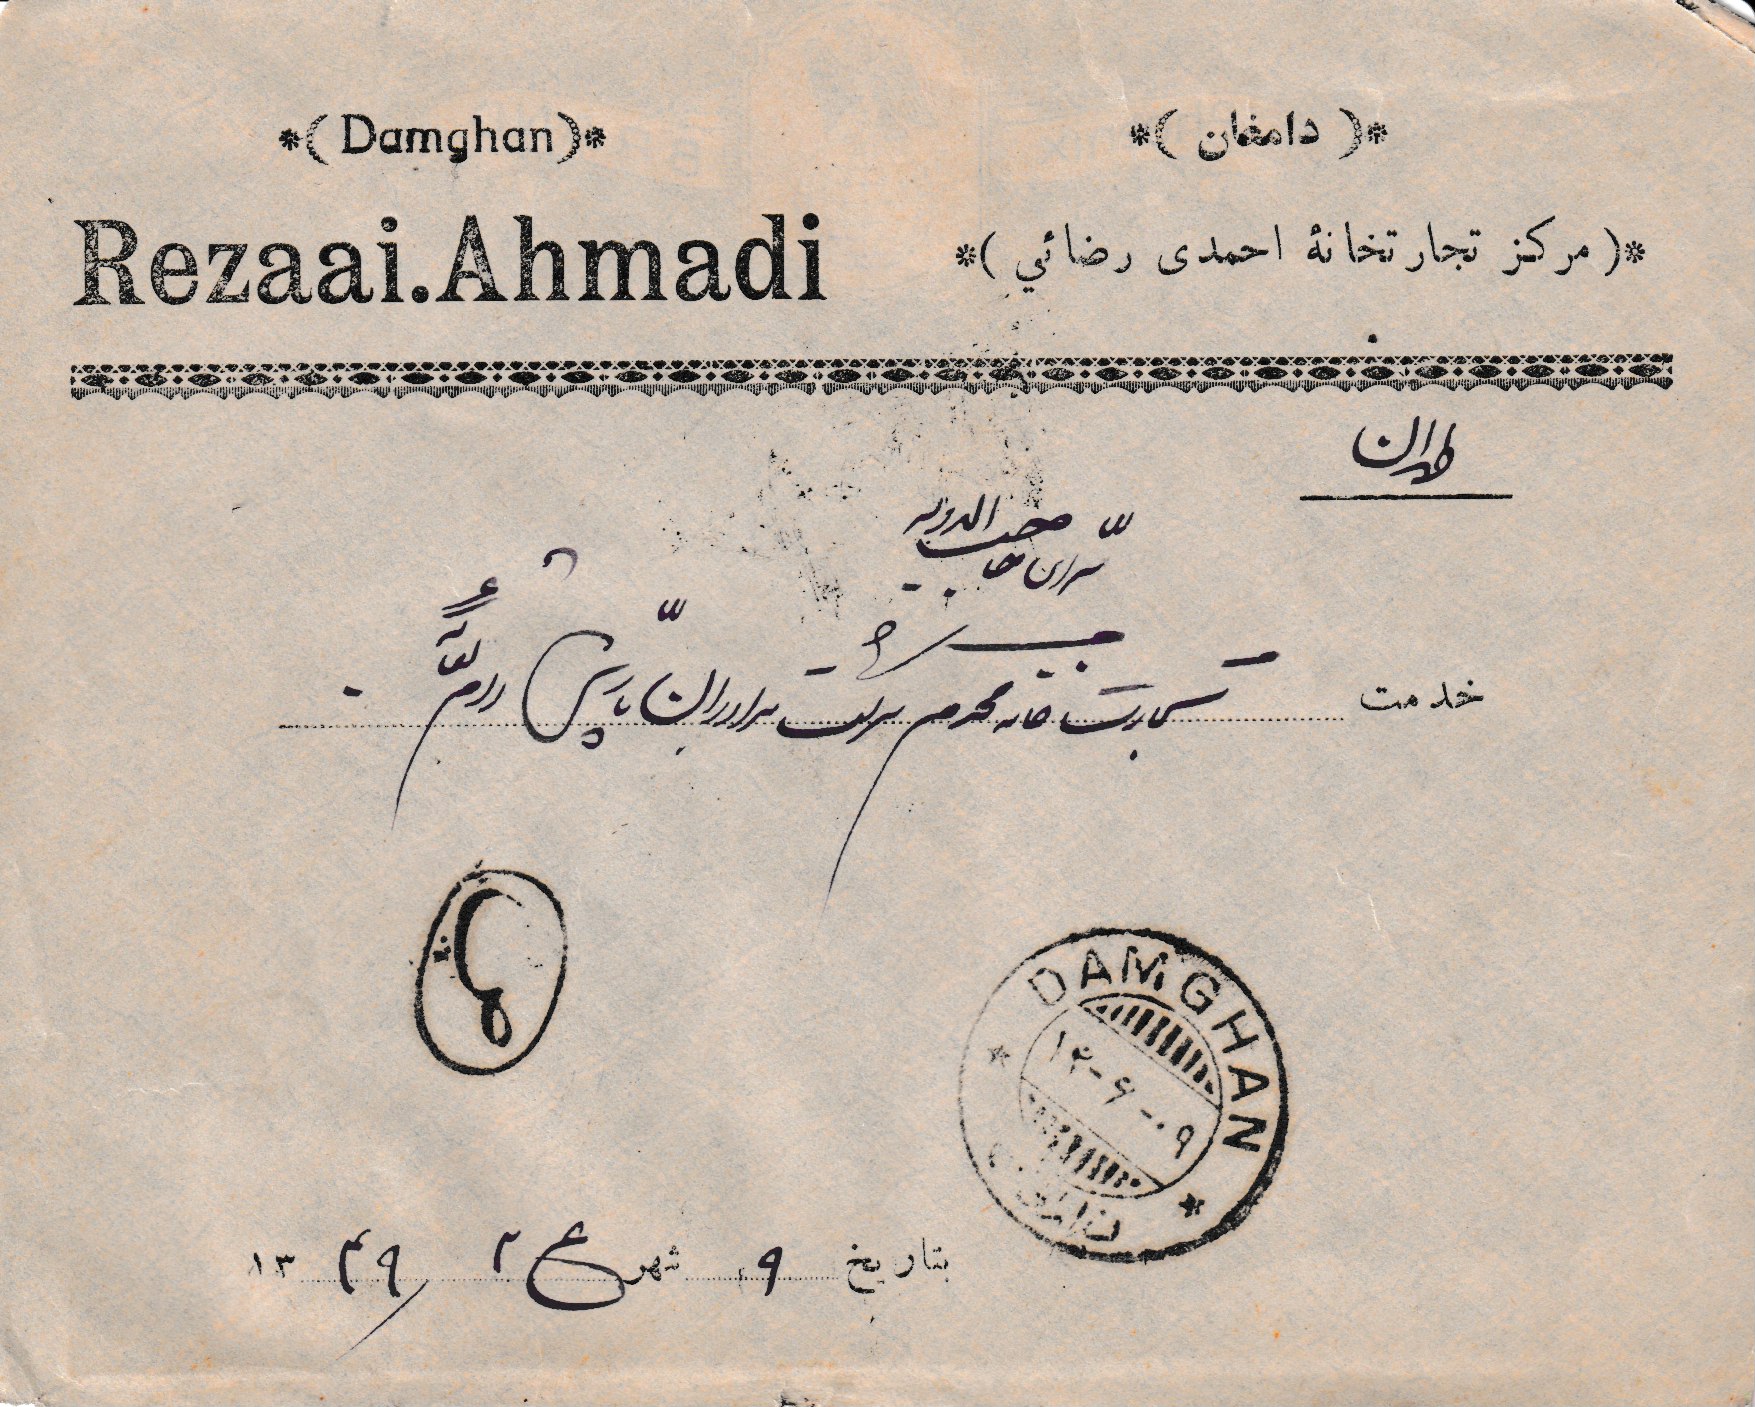 *( Damghan )*
*( دامغان )*
Rezaai.Ahmadi
*( مرکز تجارتخانهٔ احمدی رضائي )*
طهران
سرای حاجب الدوله
خدمت تجارتخانه محترم شرکت برادران پارسی دام
DAMGHAN
۱۴-۶-۰۹
دامغان
بتاریخ ۹ شهر ع ۲ ۱۳۴۹